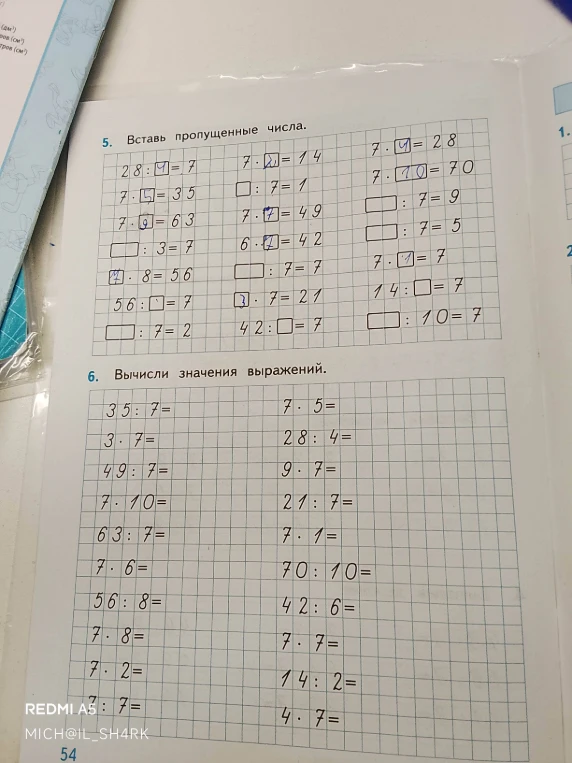 5. Вставь пропущенные числа.
28 : 4 = 7
7 · 5 = 35
7 · 9 = 63
: 3 = 7
7 · 8 = 56
56 : = 7
: 7 = 2
7 · 2 = 14
: 7 = 1
7 · 7 = 49
6 · 7 = 42
: 7 = 7
3 · 7 = 21
42 : = 7
7 · 4 = 28
7 · 10 = 70
: 7 = 9
: 7 = 5
7 · 1 = 7
14 : = 7
: 10 = 7
6. Вычисли значения выражений.
35 : 7 =
3 · 7 =
49 : 7 =
7 · 10 =
63 : 7 =
7 · 6 =
56 : 8 =
7 · 8 =
7 · 2 =
7 : 7 =
7 · 5 =
28 : 4 =
9 · 7 =
21 : 7 =
7 · 1 =
70 : 10 =
42 : 6 =
7 · 7 =
14 : 2 =
4 · 7 =
54
1.
REDMI A5
MICH@IL_SH4RK